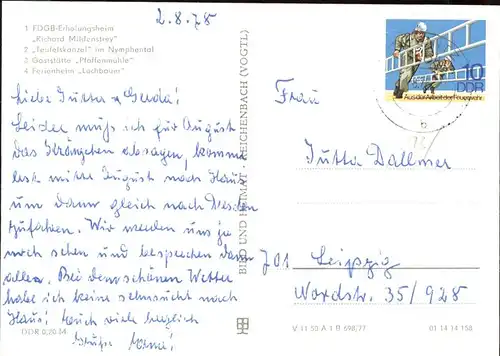 2.8.78
1 FDGB-Erholungsheim
„Richard Mildenstrey"
2 „Teufelskanzel" im Nymphental
3 Gaststätte „Pfaffenmühle"
4 Ferienheim „Lochbaum"
Liebe Jutta u. Gerda!
Leider muß ich für August
das Kränzchen absagen, komme
erst mitte August nach Haus
um dann gleich nach Dresden
zufahren. Wir werden uns ja
noch sehen und besprechen dann
alles. Bei dem schönen Wetter
habe ich keine sehnsucht nach
Haus! Euch viele herzlich
Grüße Erna!
DDR 0,20 M
BILD UND HEIMAT REICHENBACH (VOGTL)
10
DDR
Aus der Arbeit der Feuerwehr
b
Frau
Jutta Dallmer
701 Leipzig
Nordstr. 35/928
V 11 50 A 1 B 698/77
01 14 14 158